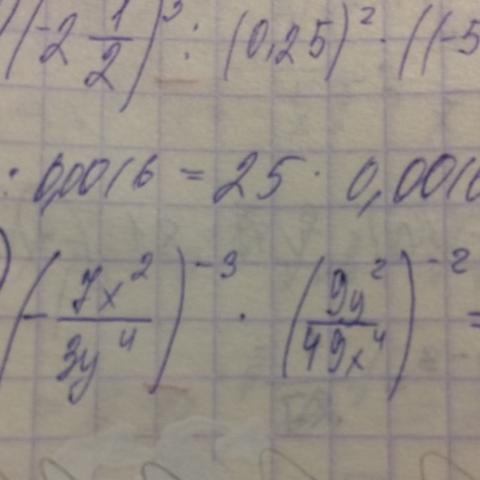 (-2 1/2)^3 : (0,25)^2 · ((-5
· 0,0016 = 25 · 0,0016
(-7x^2/3y^4)^-3 · (9y^2/49x^4)^-2 =